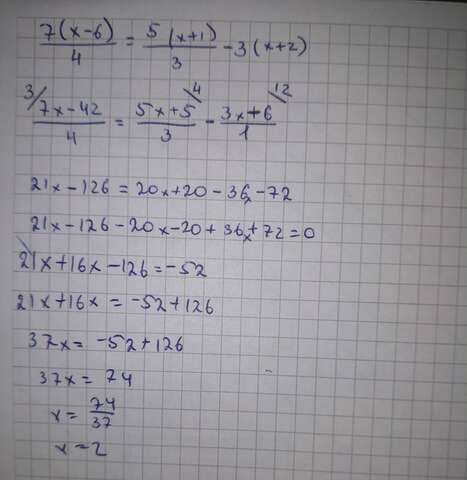 7(x-6)/4 = 5(x+1)/3 - 3(x+2)
3/ 7x-42/4 = 5x+5/3 \4 - 3x+6/1 \12
21x-126 = 20x+20-36x-72
21x-126-20x-20+36x+72=0
21x+16x-126=-52
21x+16x = -52+126
37x = -52+126
37x = 74
x = 74/37
x=2